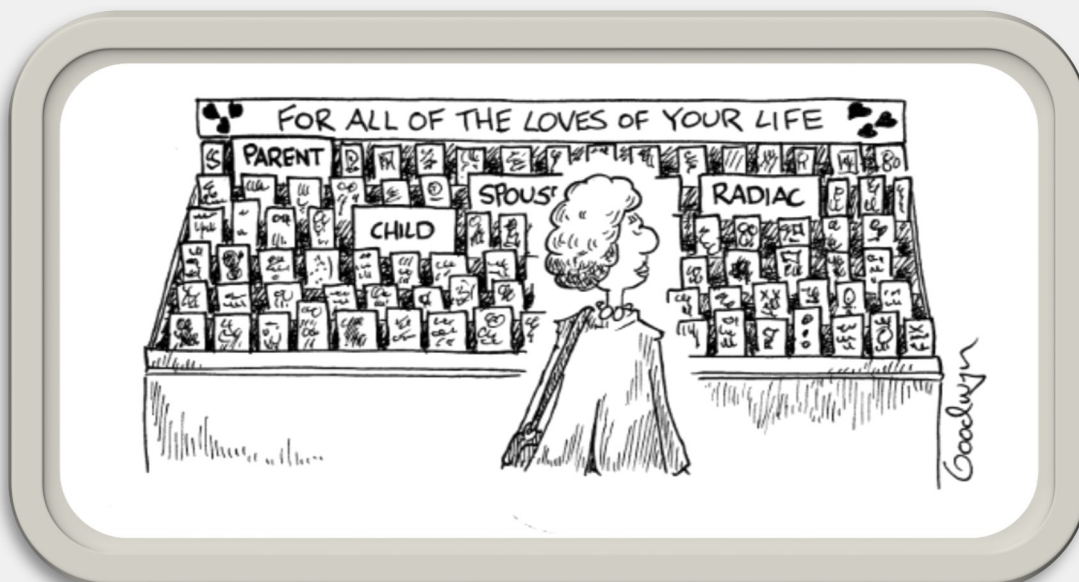 FOR ALL OF THE LOVES OF YOUR LIFE
PARENT
SPOUS
RADIAC
CHILD
Goodwyn